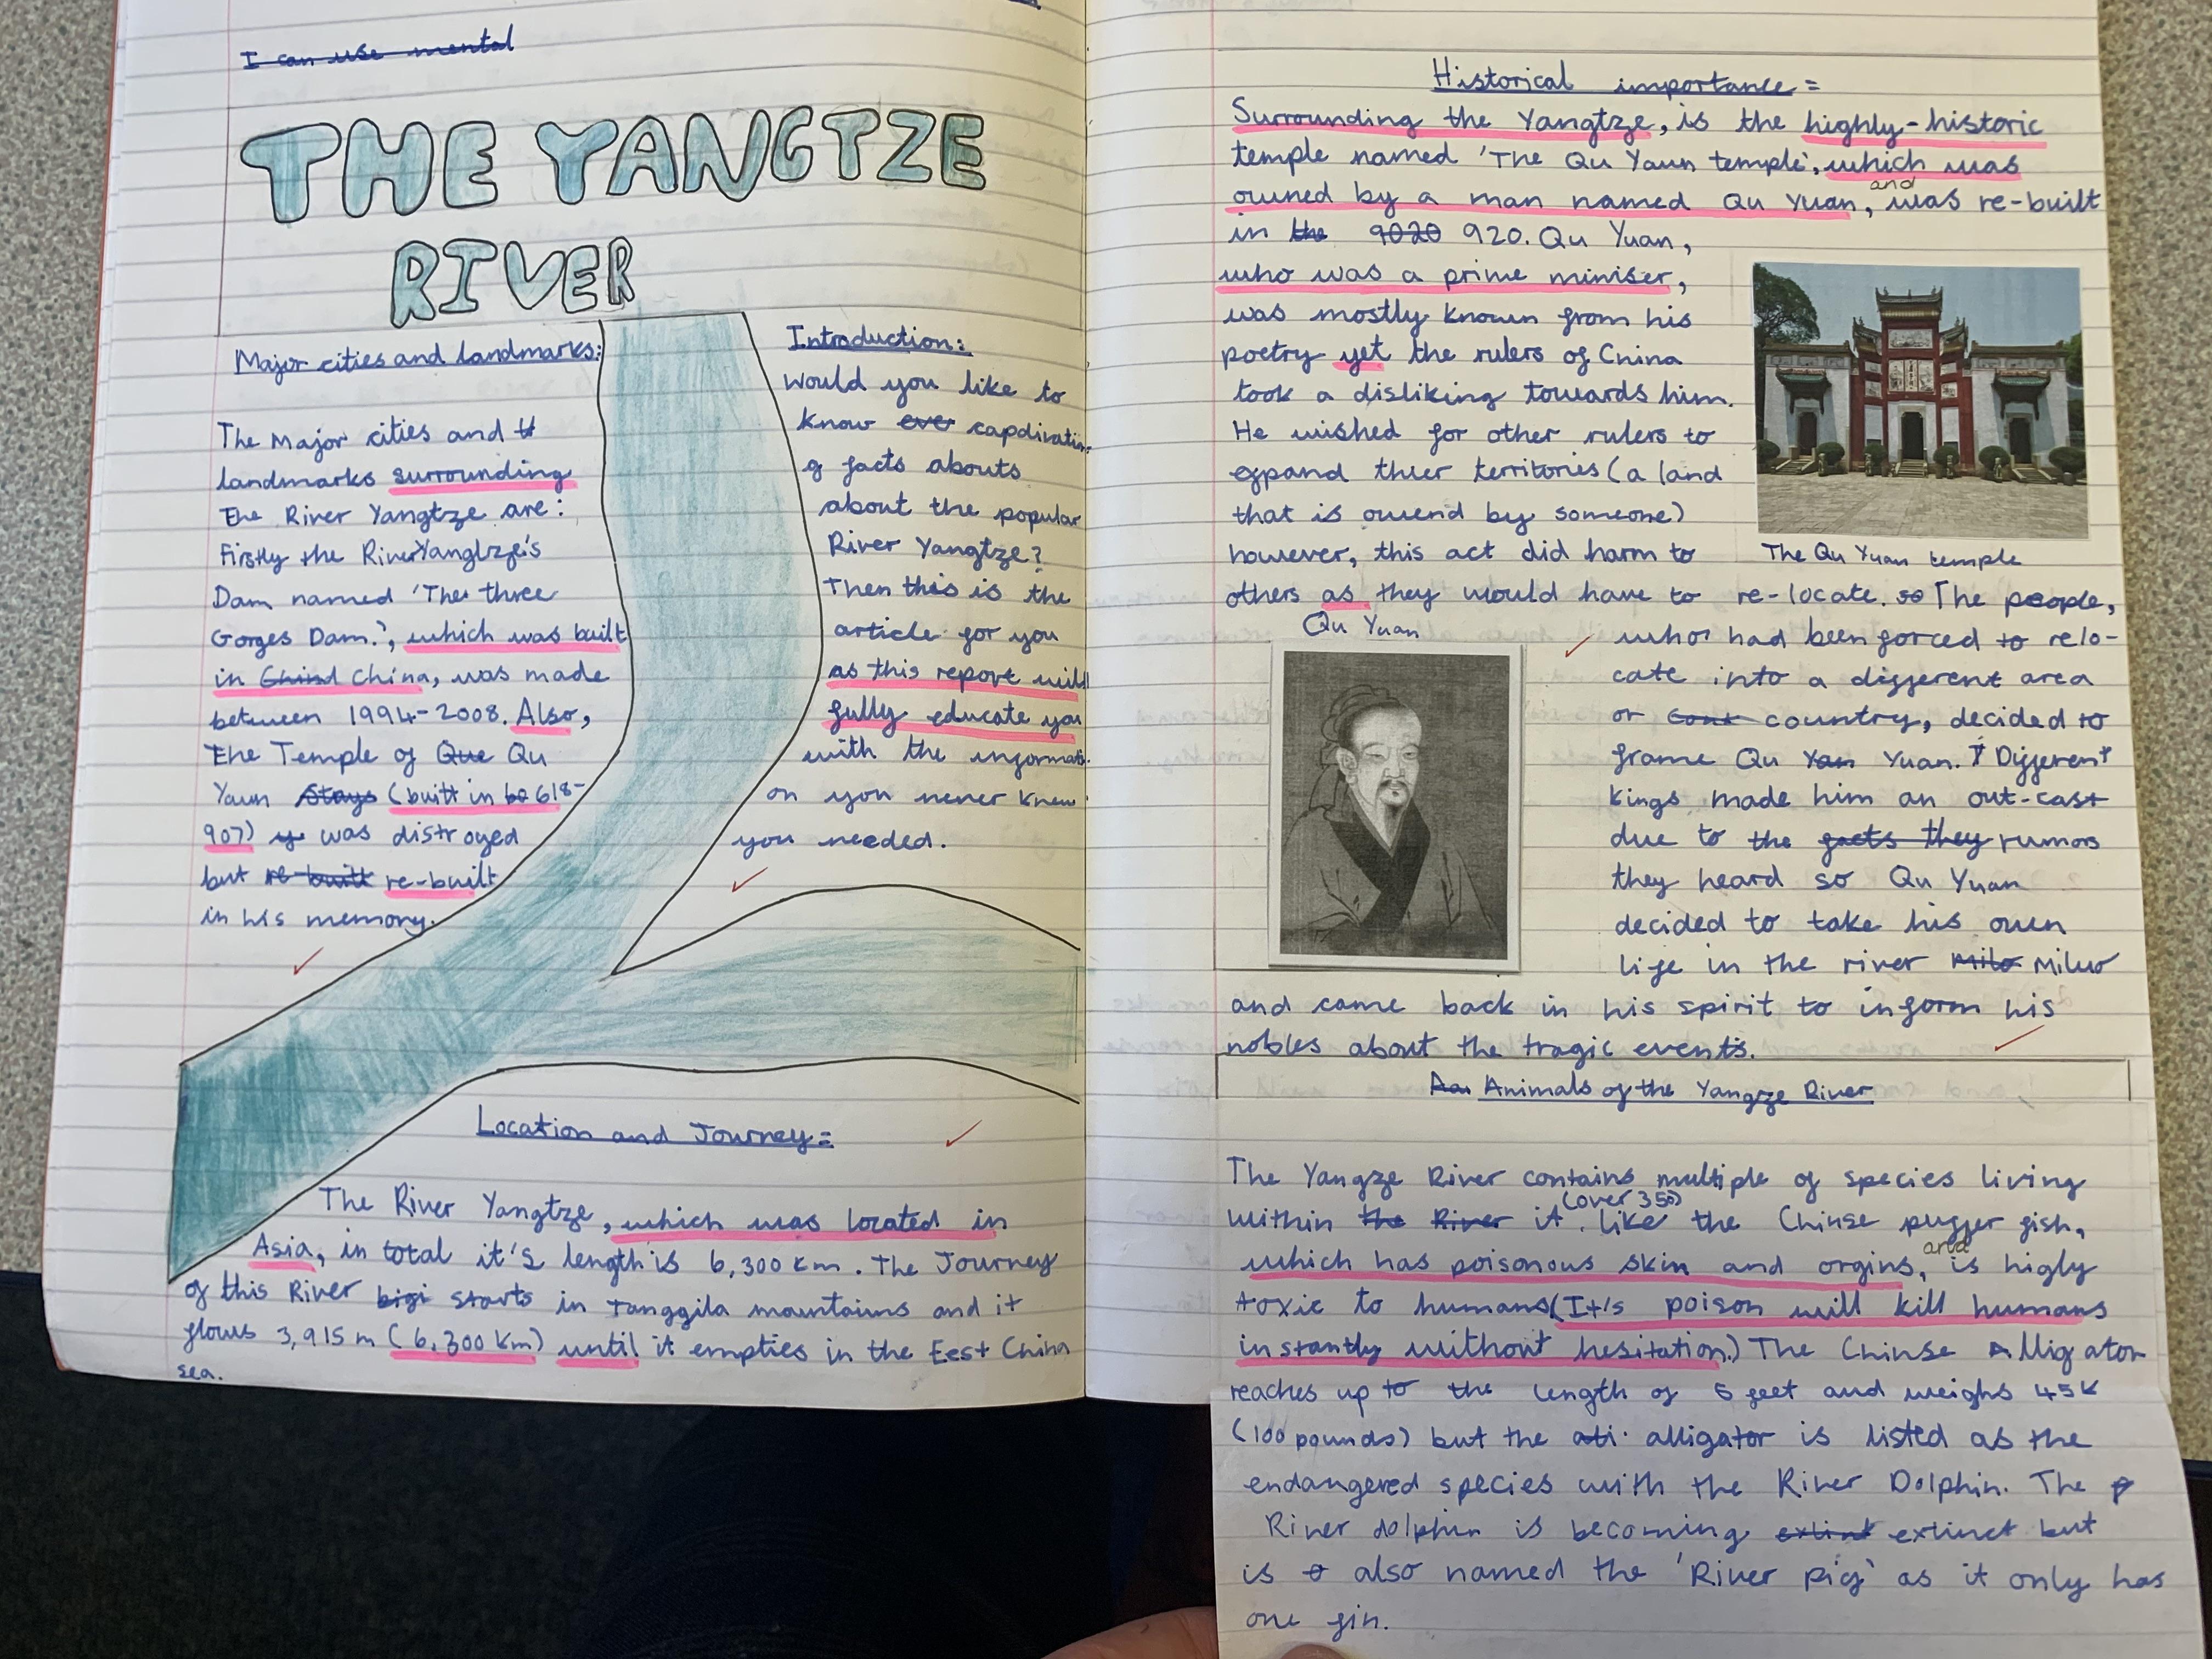 I can use mental
THE YANGTZE
RIVER
Major cities and landmarks:
The Major cities and tt
landmarks surrounding
The River Yangtze are:
Firstly the River Yangtze's
Dam named 'The three
Gorges Dam.', which was built
in Chind China, was made
between 1994-2008. Also,
The Temple of Que Qu
Yaun Stays (built in be 618-
907) was distroyed
but re-built re-built
in his memory.
Introduction:
Would you like to
know ever capdivatin
g facts abouts
about the popular
River Yangtze?
Then this is the
article for you
as this report will
fully educate you
with the informati
on you never knew
you needed.
Location and Journey=
The River Yangtze, which was located in
Asia, in total it's length is 6,300 km. The Journey
of this River bigi starts in Tanggila mountains and it
flows 3,915 m (6,300 km) until it empties in the East China
sea.
Historical importance=
Surrounding the Yangtze, is the highly-historic
temple named 'The Qu Yaun temple', which was
owned by a man named Qu Yuan, and was re-built
in the 9020 920. Qu Yuan,
who was a prime miniser,
was mostly known from his
poetry yet the rulers of China
took a disliking towards him.
He wished for other rulers to
expand thier territories (a land
that is owend by someone)
however, this act did harm to
The Qu Yuan temple
others as they would have to re-locate. so The people,
Qu Yuan
who had been forced to relo-
cate into a different area
or cont country, decided to
frame Qu Yan Yuan. T Different
kings made him an out-cast
due to the facts they rumors
they heard so Qu Yuan
decided to take his own
life in the river Milo Miluo
and came back in his spirit to inform his
nobles about the tragic events.
Aa Animals of the Yangze River
The Yangze River contains multiple of species living
within the River it (over 350). like the Chinse puffer fish,
which has poisonous skin and orgins, and is higly
toxic to humans (It's poison will kill humans
instantly without hesitation.) The Chinse Alligator
reaches up to the length of 5 feet and weighs 45k
(100 pounds) but the ati alligator is listed as the
endangered species with the River Dolphin. The p
River dolphin is becoming extint extinct but
is also named the 'River pig' as it only has
one fin.